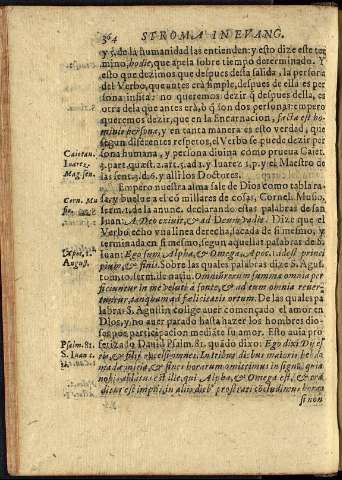 364 STROMA IN EVANG.
y ẽ, de la humanidad las entienden: y esto dize este ter
mino, hodie, que apela sobre tiempo determinado. Y
esto que dezimos que despues desta salida, la persona
del Verbo, que antes era simple, despues de ella es per
sona no queremos dezir q̃ despues della, es
otra dela que antes era, ò q̃ son dos personas: empero
queremos dezir, que en la Encarnacion, facta est ho
minis persona, y en tanta manera es esto verdad, que
segun diferentes respetos, el Verbo se puede dezir per
Caietan. sona humana, y persona divina como prueua Caiet.
Suarez. 3. part. quæst. 2. art. 3. ad 2. y Suarez y el Maestro de
Mag. sen. las senten. d. 6. y alli los Doctores.
Empero nuestra alma sale de Dios como tabla ra-
Corn. Mu sa, y buelue a el cõ millares de cosas, Cornel. Musso,
ser. 1. de la anunc. declarando estas palabras de san
Iuan: A Deo exiuit, & ad Deum vadit. Dize que el
Verbo echo vna linea derecha, sacada de si mesmo, y
terminada en si mesmo, segun aquellas palabras de S.
Apoc. 1. Iuan: Ego sum Alpha, & Omega. Apoc. 1. idest princi
August. pium, & finis. Sobre las quales palabras dize S. Agus
tom. 10. ser. de natiu. Omnibonum summa omnia per
ficiuntur in me velut à fonte, & ad eum omnia reuer-
tuntur, tanquam ad fœlicitatis ortum. De las quales pa
labras S. Agustin colige auer començado el amor en
Dios, y no auer parado hasta hazer los hombres dio-
ses por participacion mediãte su amor. Esto auia pro
Psalm. 81. fetizado Dauid Psalm. 81. quãdo dixo: Ego dixi Dij es
S. Iuan 1. tis, & filij excelsi omnes. In tribus diebus maioris hebdo
madæ initia, & fines horarum omittimus in signũ, quia
nobis ablatus est ille, qui Alpha, & Omega est, & ora
si non